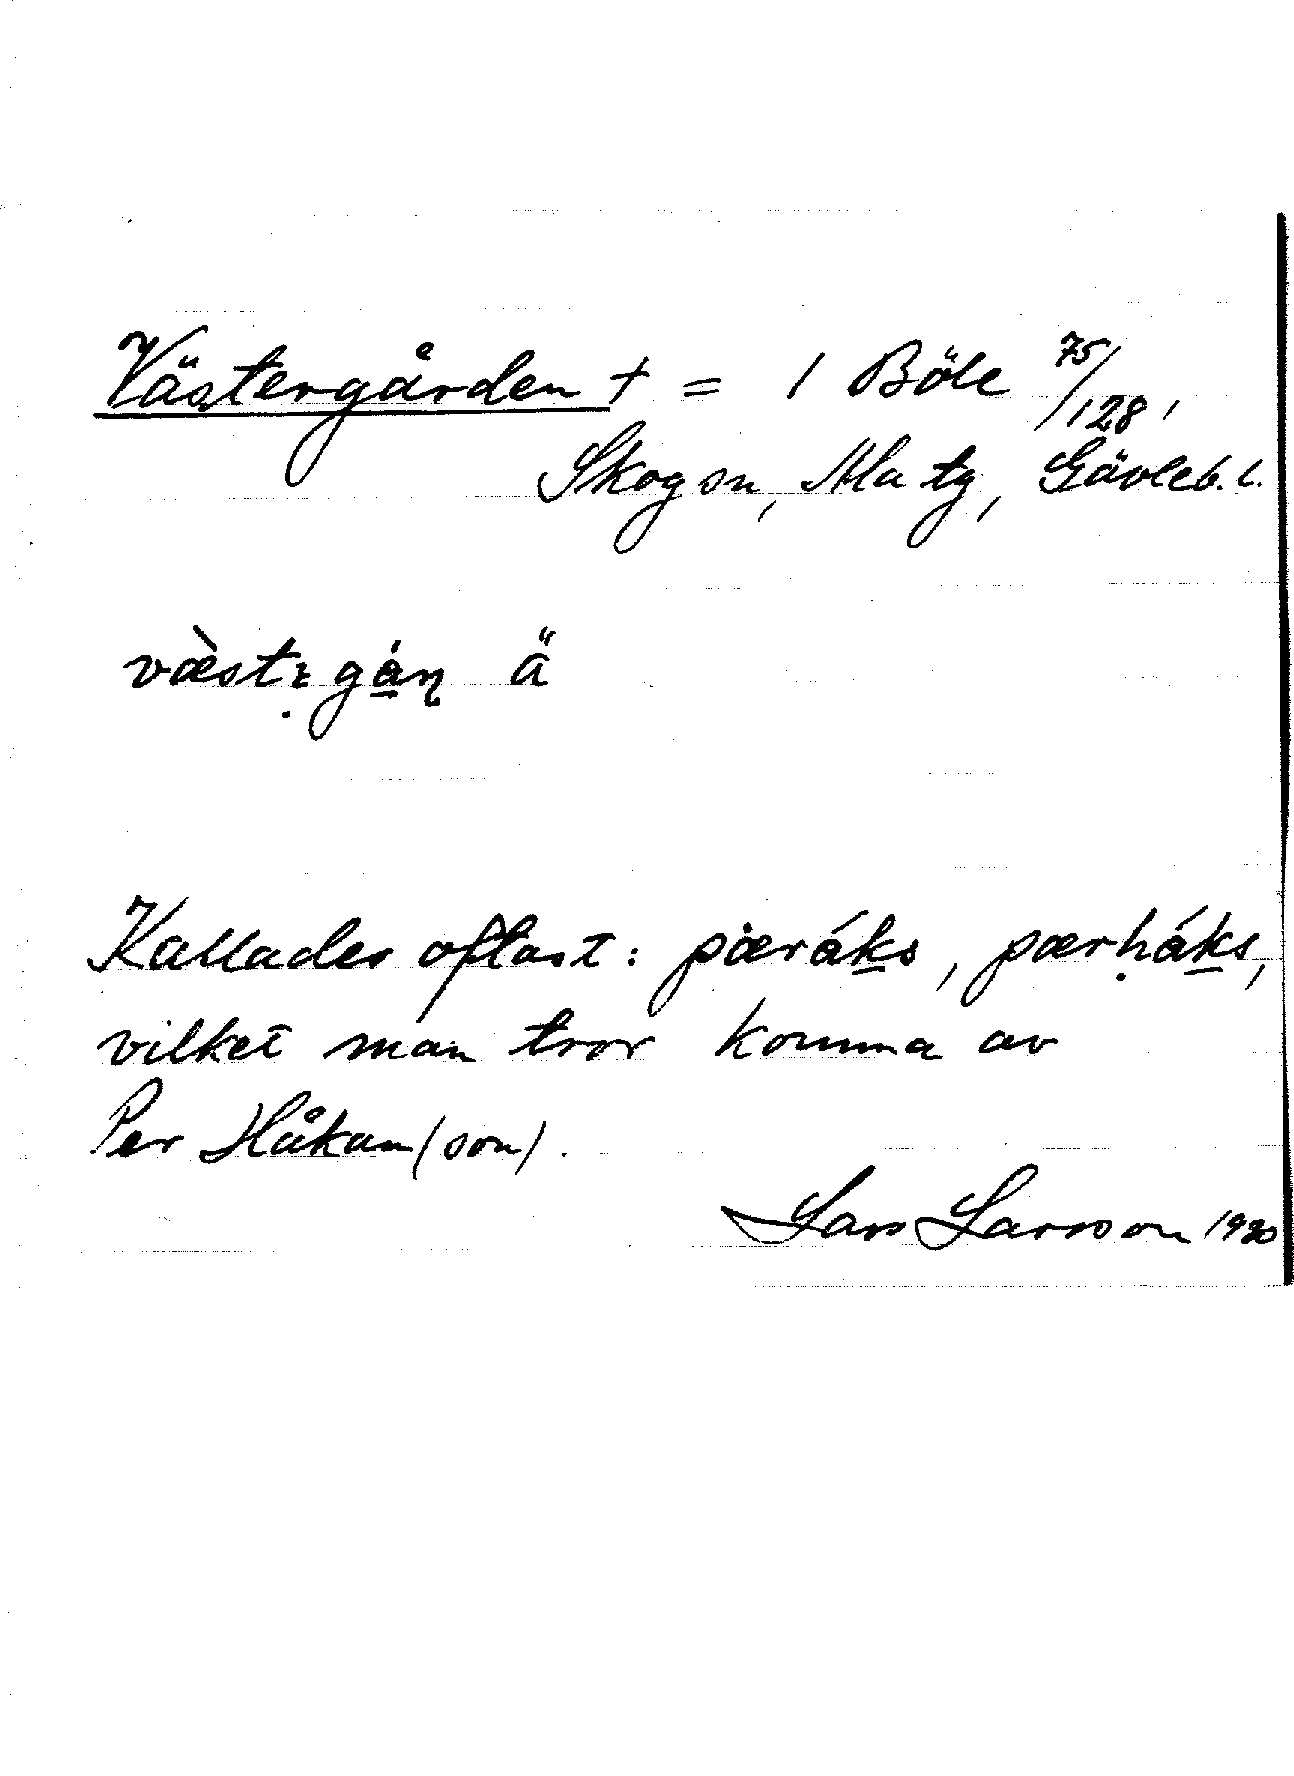 Västergården † = 1 Böle 75/128,
Skogsn, Ala tg, Gävleb. l.
væ̀str̤gán̠ ä
Kallades oftast: pæráks, pærḥáks,
vilket man tror komma av
Per Håkan(son).
Lars Larsson 1920